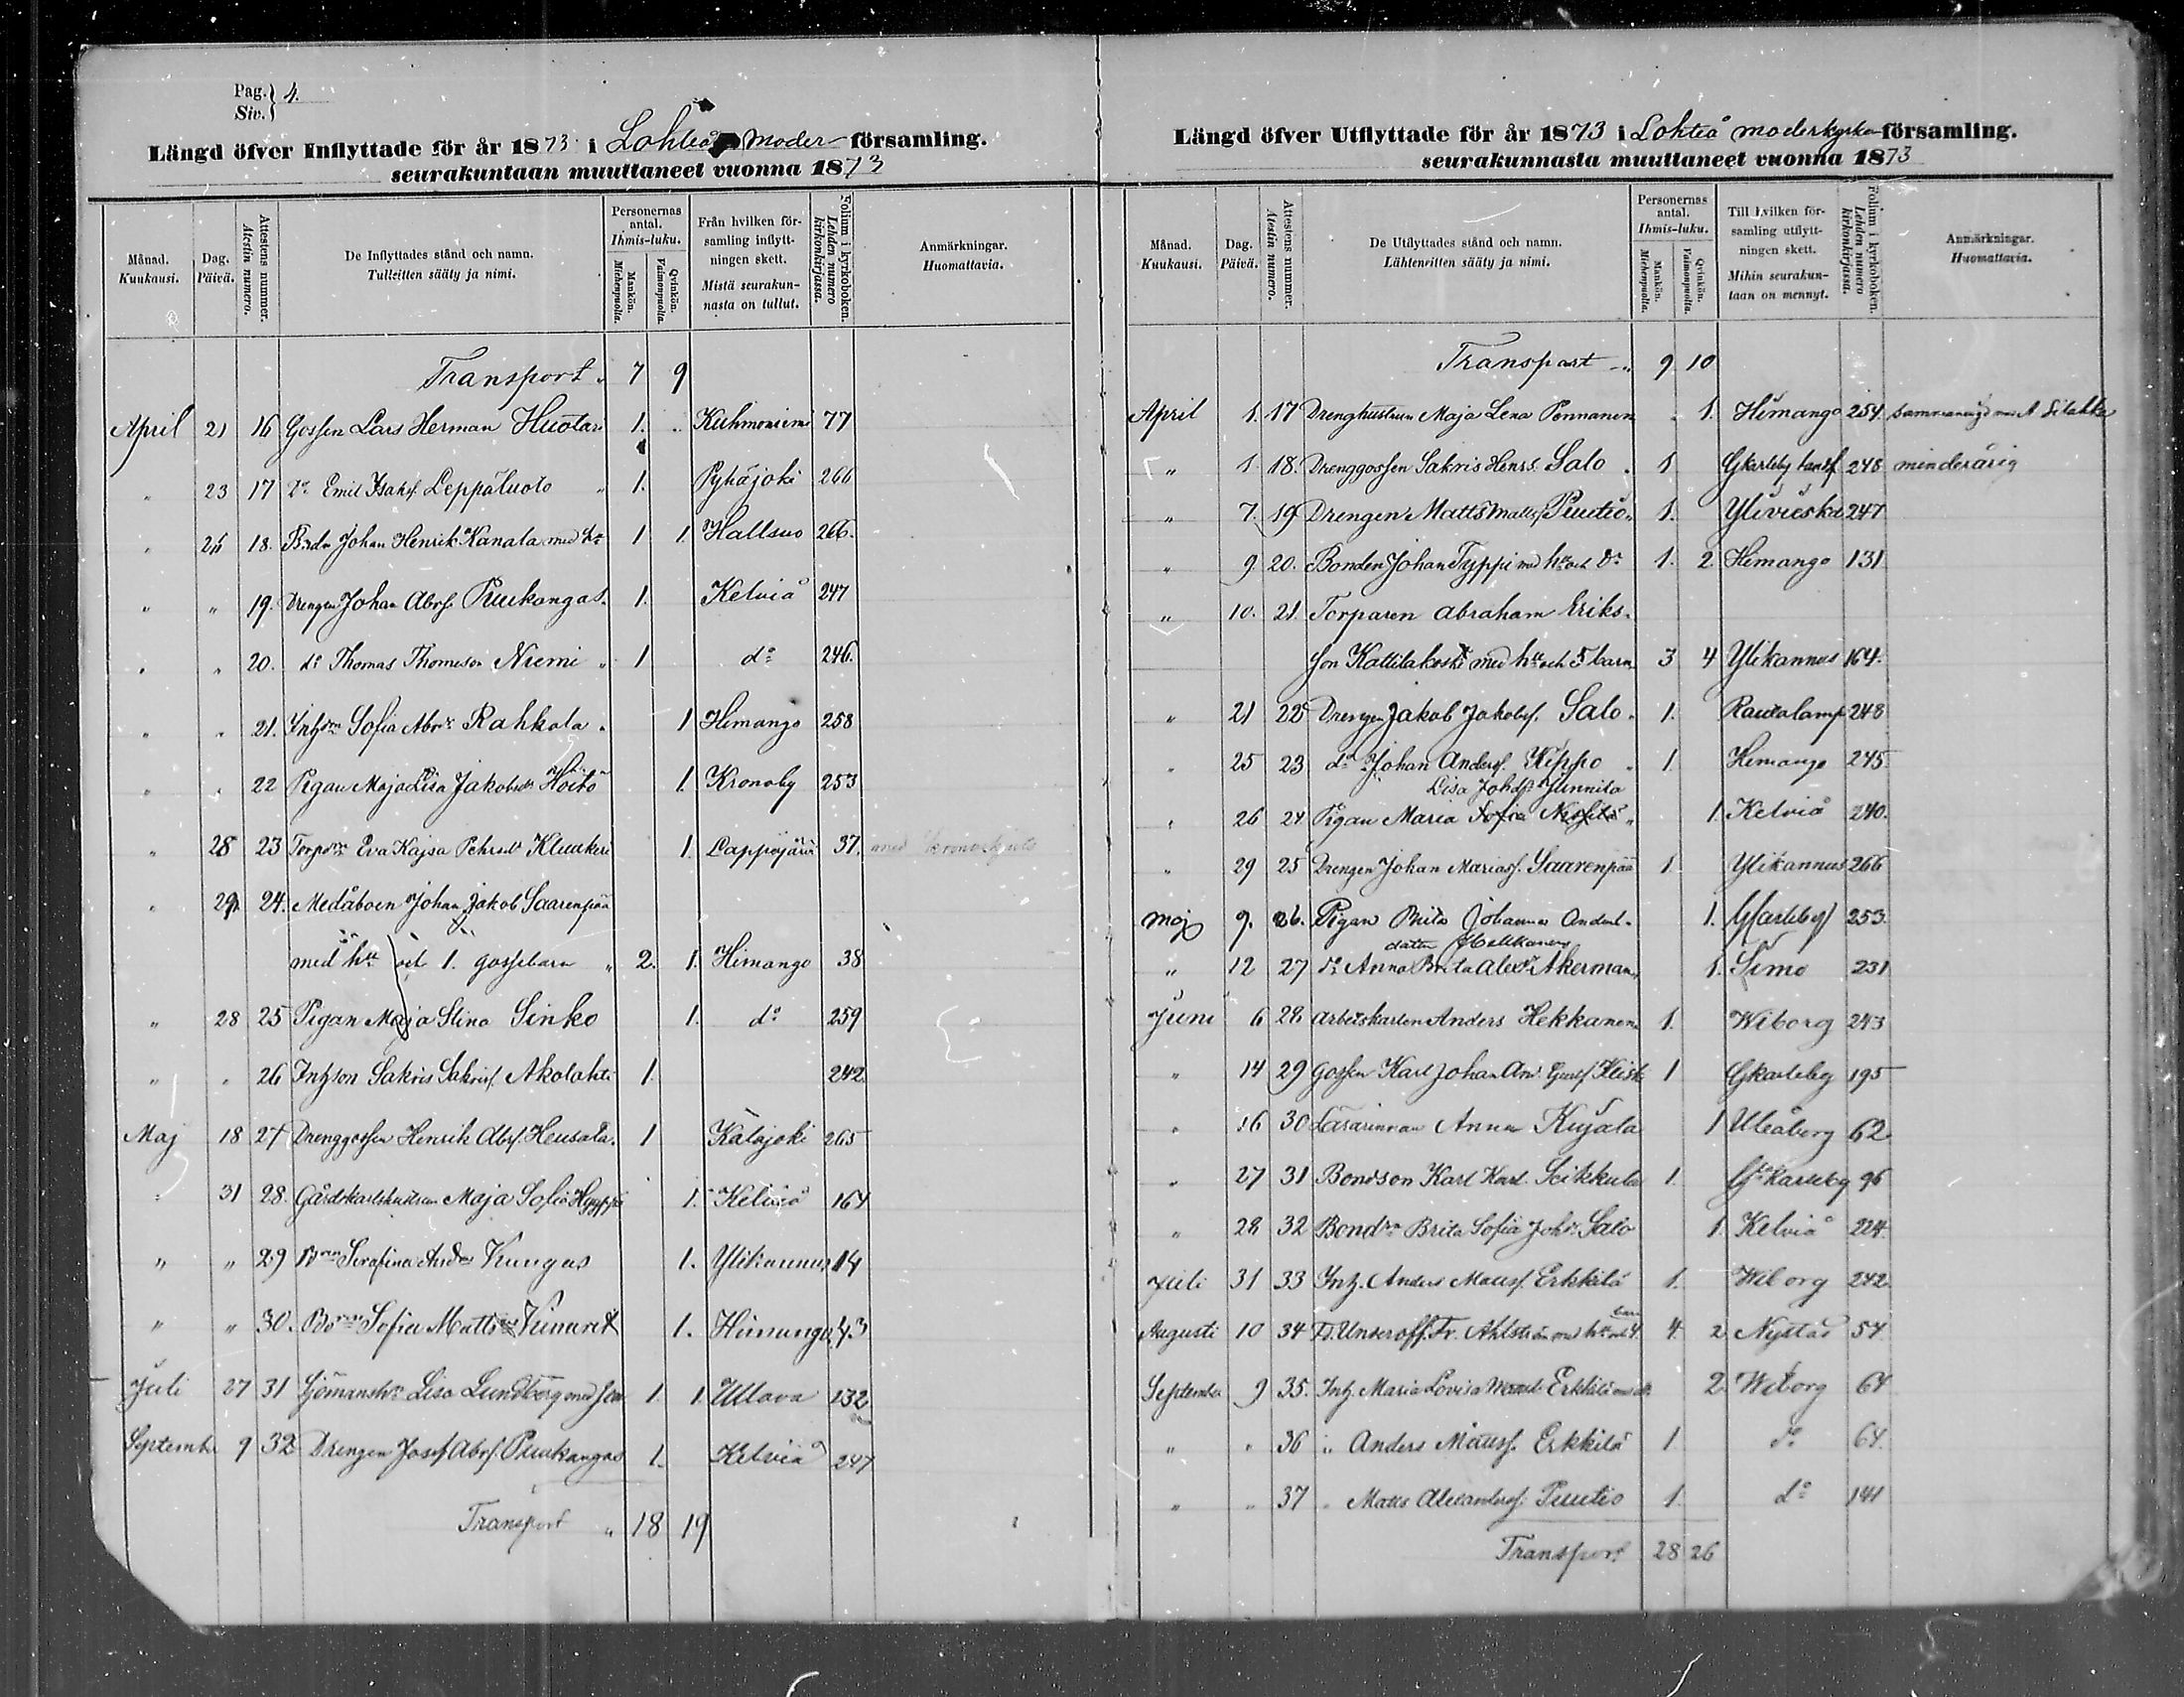 Pag. } 4.
Siv. }
Längd öfver Inflyttade för år 1873 i Lohteå moder-församling.
seurakuntaan muuttaneet vuonna 1873
Månad. Kuukausi. Dag. Päivä. Attestens nummer. Atestin numero. De Inflyttades stånd och namn. Tulleitten sääty ja nimi. Personernas antal. Ihmis-luku. Mankön. Miehenpuolta. Qvinkön. Vaimonpuolta. Från hvilken för-samling inflytt-ningen skett. Mistä seurakun-nasta on tullut. Folium i kyrkoboken. Lehden numero kirkonkirjassa. Anmärkningar. Huomattavia.
Transport " 7 9
April 21 16 Gossen Lars Herman Huotari 1. " Kuhmoniemi 77
" 23 17 Do Emil Isaksf. Leppäluoto " 1. Pyhäjoki 266
" 26 18. Johan Henrik Kanala med 1 1 Hallsuo 266.
" " 19. Drengen Johan Abrsf. Puukangas. 1. Kelviå 247
" " 20. do Thomas Thomsson Niemi " 1 do 246.
" " 21. Sofia Abrdr Rahkola " 1 Himango 258
" " 22 Pigan Maja Lisa Jakobsdr Höitö 1. Kronoby 253
" 28 23 Eva Kajsa Pehrsdr Kluukeri 1. Lappajärvi 37. med
" 29 24. Medåboen Johan Jakob Saarenpää
med h:u och 1. gossebarn " 2. 1. Himango 38
" 28 25 Pigan Maja Stina Sinko 1. do 259
" " 26 Inhson Sakris Sakrisf. Akolahti 1. 242
Maj 18 27 Drenggossen Henrik Absf. Heusala. 1 Kalajoki 265
" 31 28. Gårdskarlshustrun Maja Sofia Hyyppä 1. Kelviå 164
" " 29 Serafina Andr Kungas 1. Ylikannus 14
" " 30. Sofia Matts 1. Himango 43
Juli 27 31 Sjömansh:u Lisa Lundberg med son 1. 1. Ullava 132
Septembr 9 32 Drengen Josef Absf. Puukangas 1. Kelviå 247
Transport " 18 19
Längd öfver Utflyttade för år 1873 i Lohteå moderkyrko-församling.
seurakunnasta muuttaneet vuonna 1873
Månad. Kuukausi. Dag. Päivä. Attestens nummer. Atestin numero. De Utflyttades stånd och namn. Lähtenvitten sääty ja nimi. Personernas antal. Ihmis-luku. Mankön. Miehenpuolta. Qvinkön. Vaimonpuolta. Till hvilken för-samling utflytt-ningen skett. Mihin seurakun-taan on mennyt. Folium i kyrkoboken. Lehden numero kirkonkirjassa. Anmärkningar. Huomattavia.
Transport " 9 10
April 1. 17 Drenghustrun Maja Lena Pennanen " 1. Himango 254.
" 1 18. Drenggossen Sakris Henrs. Salo " 1 Gkarleby landsf 248 minderårig
" 7. 19 Drengen Matts Mattsf Puutio " 1. Ylivieska 247
" 9 20. Bonden Johan Typpi med h:u och dr 1. 2 Himango 131
" 10. 21. Torparen Abraham Eriks-
son Kattilakoski med h:u och 5 barn 3 4 Ylikannus 164.
" 21 22 Drengen Jakob Jakobsf. Salo. 1. Rautalamp 248
" 25 23 do Johan Andersf. Kippo " 1. Himango 245
Lisa Johdr Junnila
" 26 24 Pigan Maria Sofia " 1 Kelviå 240.
" 29 25 Drengen Johan Mariasf. Saarenpää 1. Ylikannus 266
Maj 9. 26. Pigan Brita Johanna Anders- 1. Gkarleby 253
dotter Hekkanen
" 12 27 do Anna Brita Alexdr Åkerman 1. Simo 231
Juni 6 28 arbetskarlen Anders Hekkanen 1. Wiborg 243
" 14 29 Gossen Karl Johan And. 1 Gkarleby 195
" 16 30 Lärarinnan Anna Kujala 1 Uleåborg 62
" 27 31 Bondson Karl Karl. Seikkula 1. G:karleby 96
" 28 32 Bondra Brita Sofia Johdr Salo 1. Kelviå 224
Juli 31 33 Inh. Anders Mattsf. Erkkilä 1. Wiborg 242
Augusti 10 34 Fd. Underoff. Fr. Ahlström med h:u och 4 barn 4 2 Nystad 54
September 9 35. Inh. Maria Lovisa Erkkilä 2 Wiborg 64
" " 36 " Anders Mattsf. Erkkilä 1 do 64.
" " 37 " Matts Alexandersf. Puutio 1. do 141
Transport 28 26